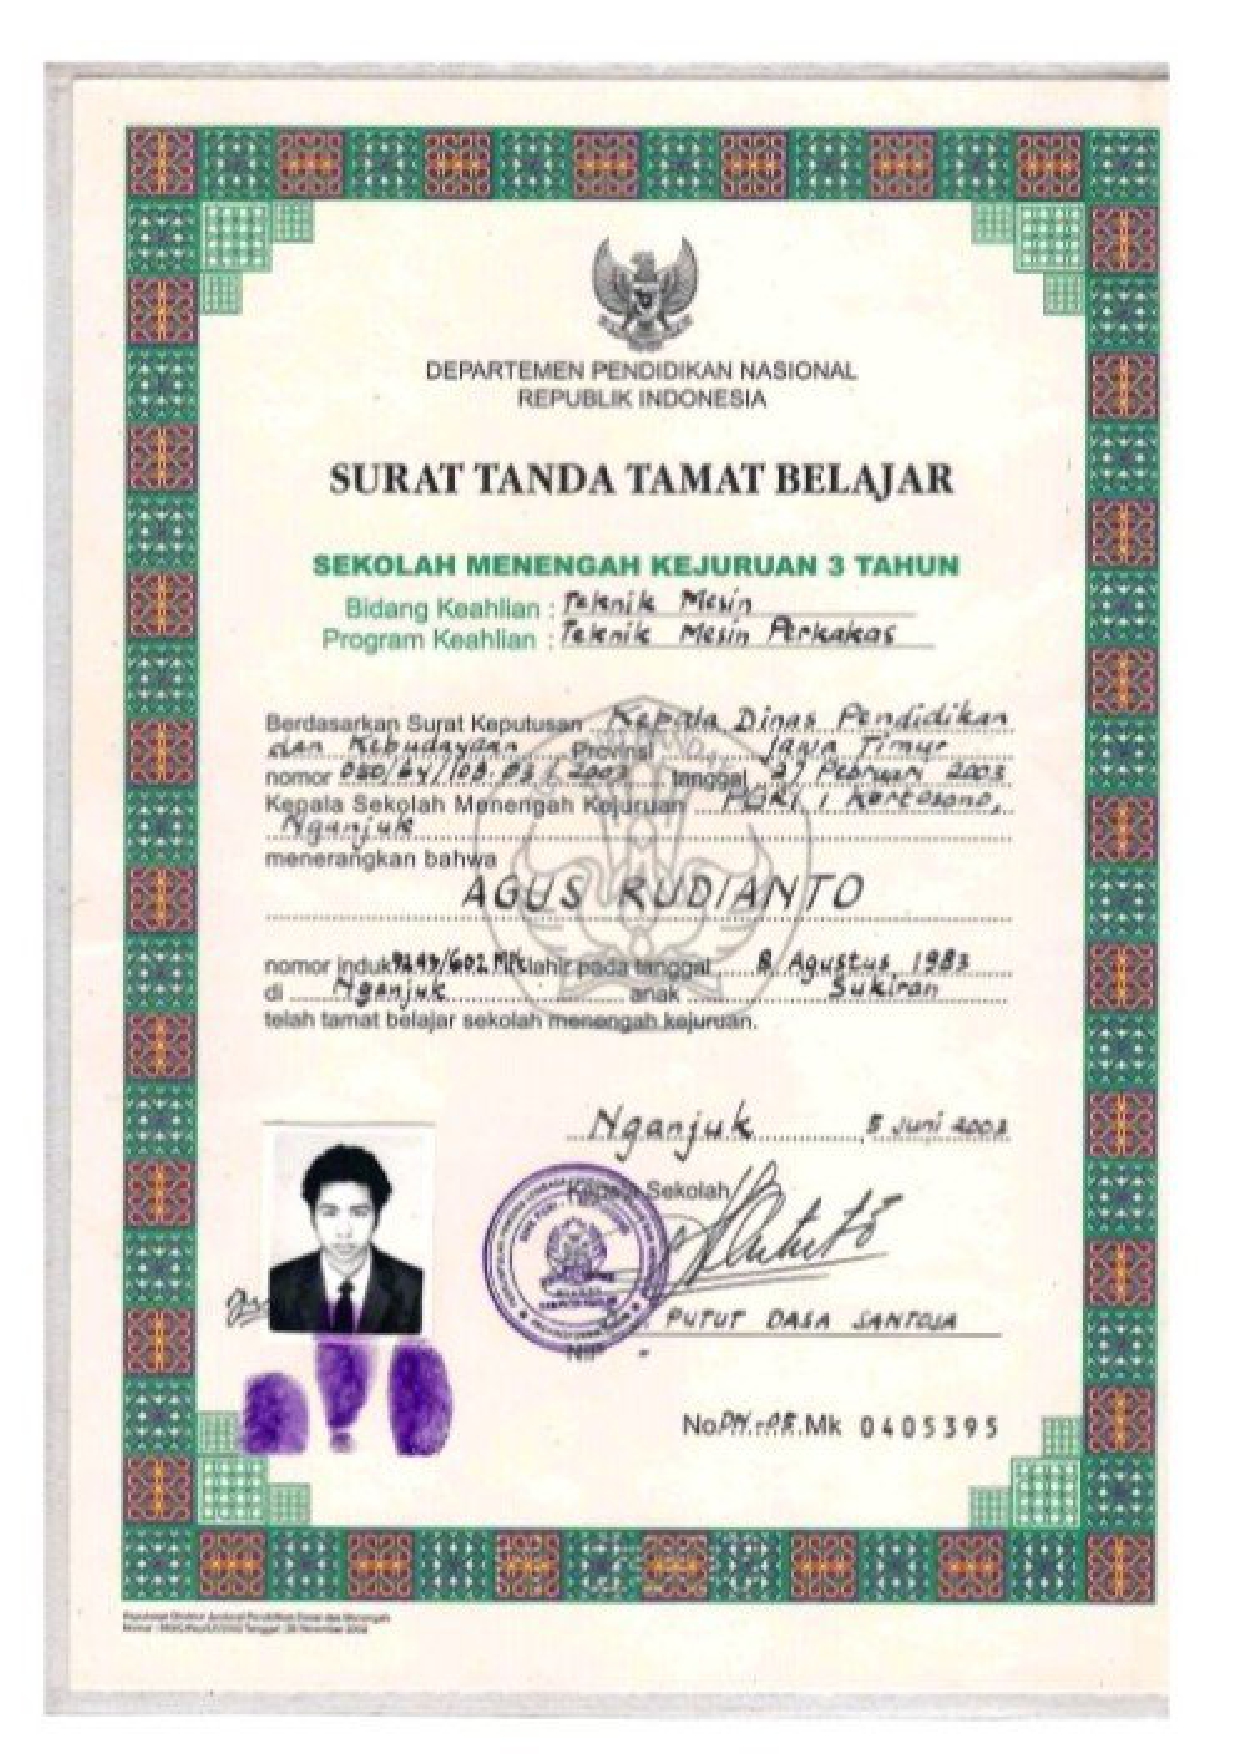 DEPARTEMEN PENDIDIKAN NASIONAL
REPUBLIK INDONESIA
SURAT TANDA TAMAT BELAJAR
SEKOLAH MENENGAH KEJURUAN 3 TAHUN
Bidang Keahlian : Teknik Mesin
Program Keahlian : Teknik Mesin Perkakas
Berdasarkan Surat Keputusan Kepala Dinas Pendidikan
dan Kebudayaan Provinsi Jawa Timur
nomor tanggal Pebruari 2003
Kepala Sekolah Menengah Kejuruan PGRI 1 Kertosono,
Nganjuk
menerangkan bahwa
AGUS RUDIANTO
nomor induk lahir pada tanggal 8 Agustus 1983
di Nganjuk anak Sukiran
telah tamat belajar sekolah menengah kejuruan.
Nganjuk, 5 Juni
Kepala Sekolah
PUTUT DASA SANTOSA
NIP -
No Mk 0405395